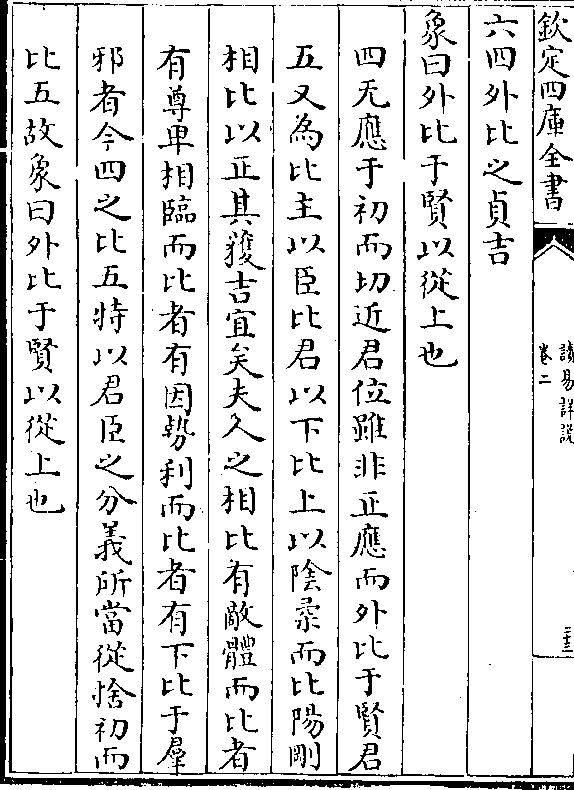 欽定四庫全書
讀易詳說
卷二
六四外比之貞吉
象曰外比于賢以從上也
四无應于初而切近君位雖非正應而外比于賢君
五又為比主以臣比君以下比上以陰柔而比陽剛
相比以正其獲吉宜矣夫人之相比有敵體而比者
有尊卑相臨而比者有因勢利而比者有下比于羣
邪者今四之比五特以君臣之分義所當從捨初而
比五故象曰外比于賢以從上也